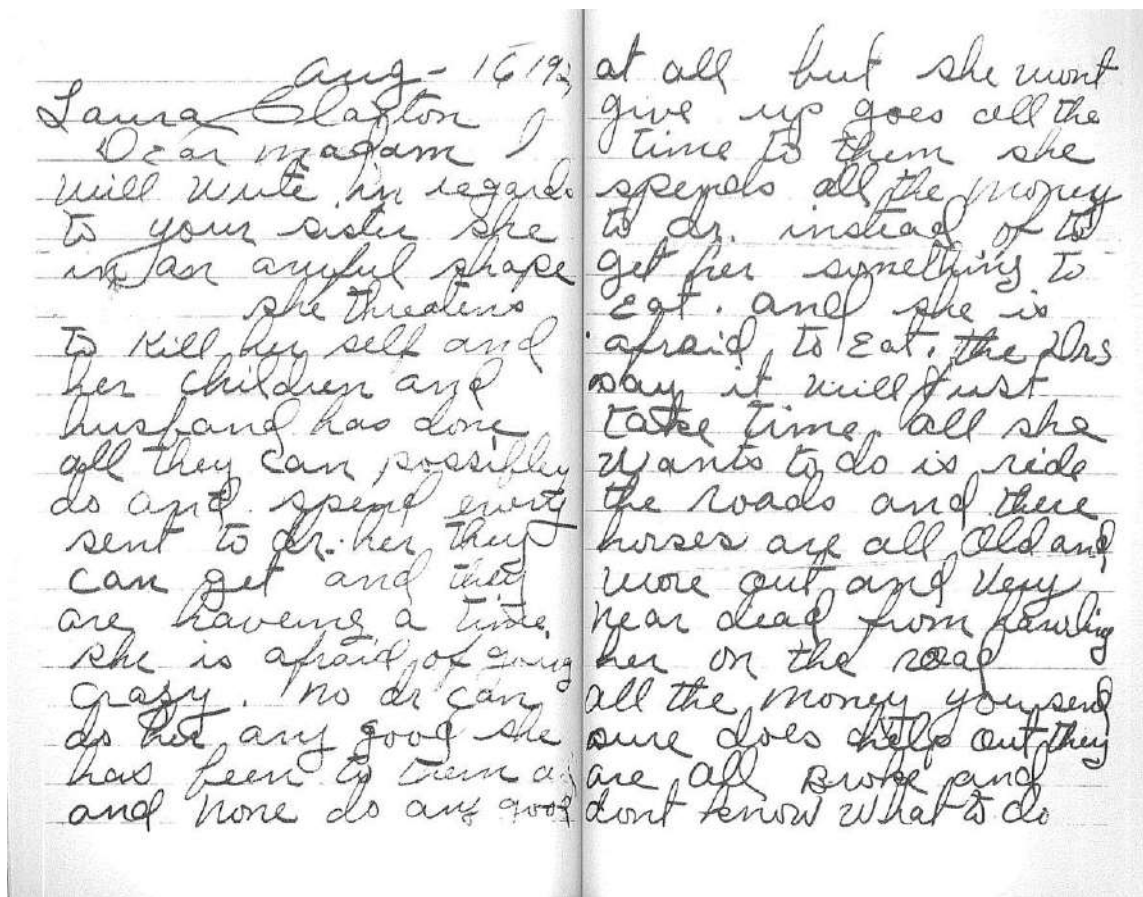 Aug - 16 192
Laura Claxton
Dear madam I
will write in regards
to your sister she
in an awful shape
she threatens
to Kill her self and
her children and
husband has done
all they can possibley
do and spend every
sent to dr. her they
can get and they
are haveing a time
she is afraid of going
crazy. no dr can
do her any good she
has been to them
and none do any good
at all but she wont
give up goes all the
time to them she
spends all the money
to dr. instead of to
get her something to
Eat. and she is
afraid to Eat. the Drs
say it will Just
take time all she
wants to do is ride
the roads and there
horses are all Old and
wore out and very
near dead from hawling
her on the road
all the money you send
sure does help out they
are all Broke and
dont know what to do